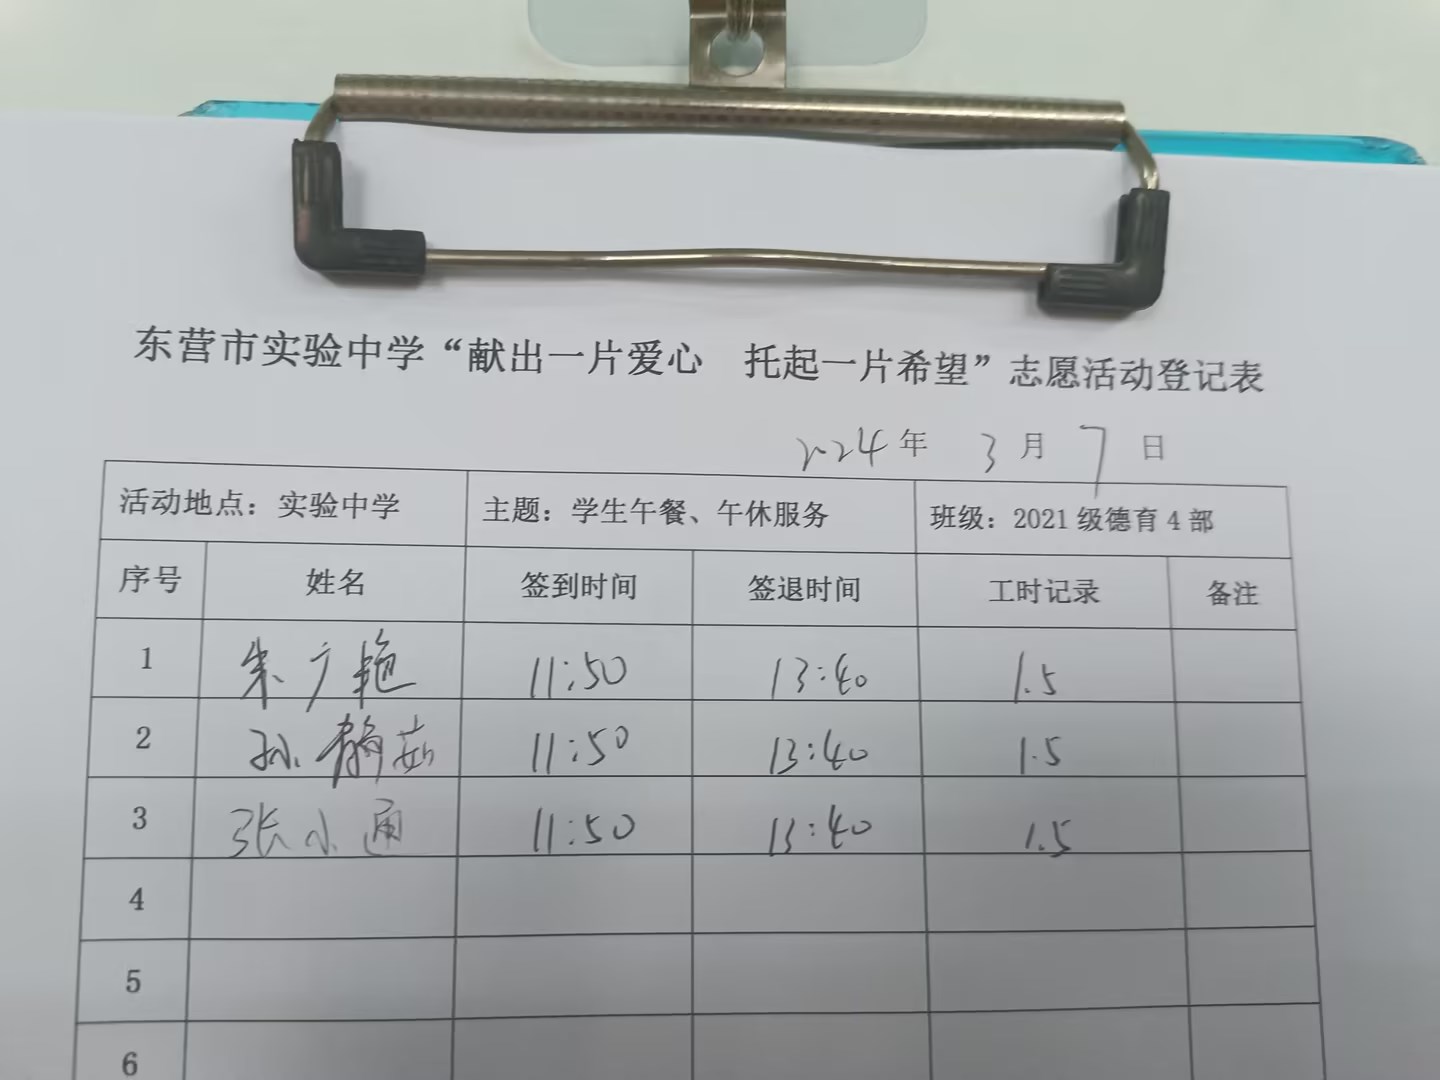 东营市实验中学“献出一片爱心 托起一片希望”志愿活动登记表
2024年 3月 7日
活动地点：实验中学 主题：学生午餐、午休服务 班级：2021级德育4部
序号 姓名 签到时间 签退时间 工时记录 备注
1 朱广艳 11:50 13:40 1.5
2 孙静茹 11:50 13:40 1.5
3 张小通 11:50 13:40 1.5
4
5
6